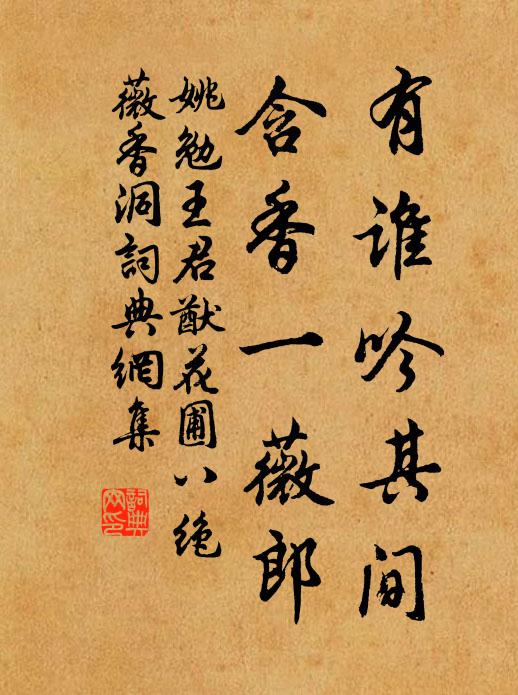 有谁吟其间
含香一薇郎
姚勉王君猷花圃八绝
薇香洞詞典網集
詞典
网印